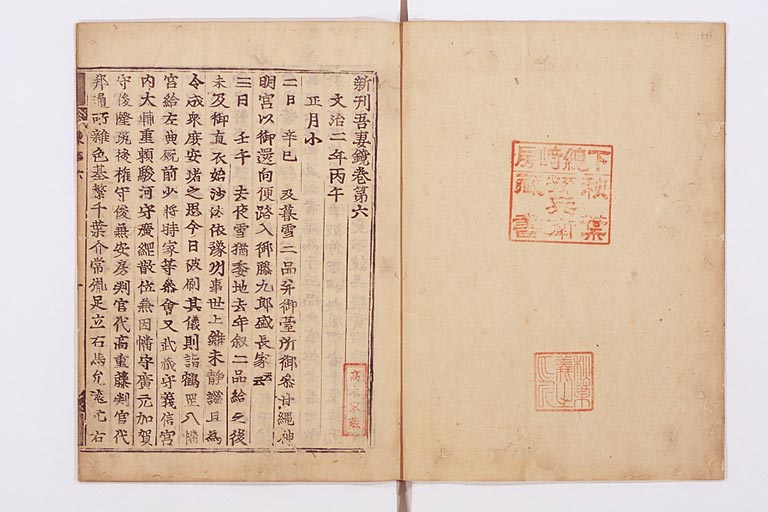 新刊吾妻鏡卷第六
文治二年丙午
正月小
二日 辛巳 及暮雪二品并御臺所御參甘繩神
明宮以御還向便路入御藤九郎盛長家云云
三日 壬午 去夜雪猶委地去年叙二品給之後
未及御直衣始沙汰依豫州事世上雖未靜謐且為
令成衆庶安堵之思今日被刷其儀則詣鶴岡八幡
宮給左典厩前少將時家等參會又武藏守義信宮
内大輔重賴駿河守廣綱散位兼因幡守廣元加賀
守俊隆筑後權守俊兼安房判官代高重藤判官代
邦通所雜色基繁千葉介常胤足立右馬允遠元右
下總崎房
藏書